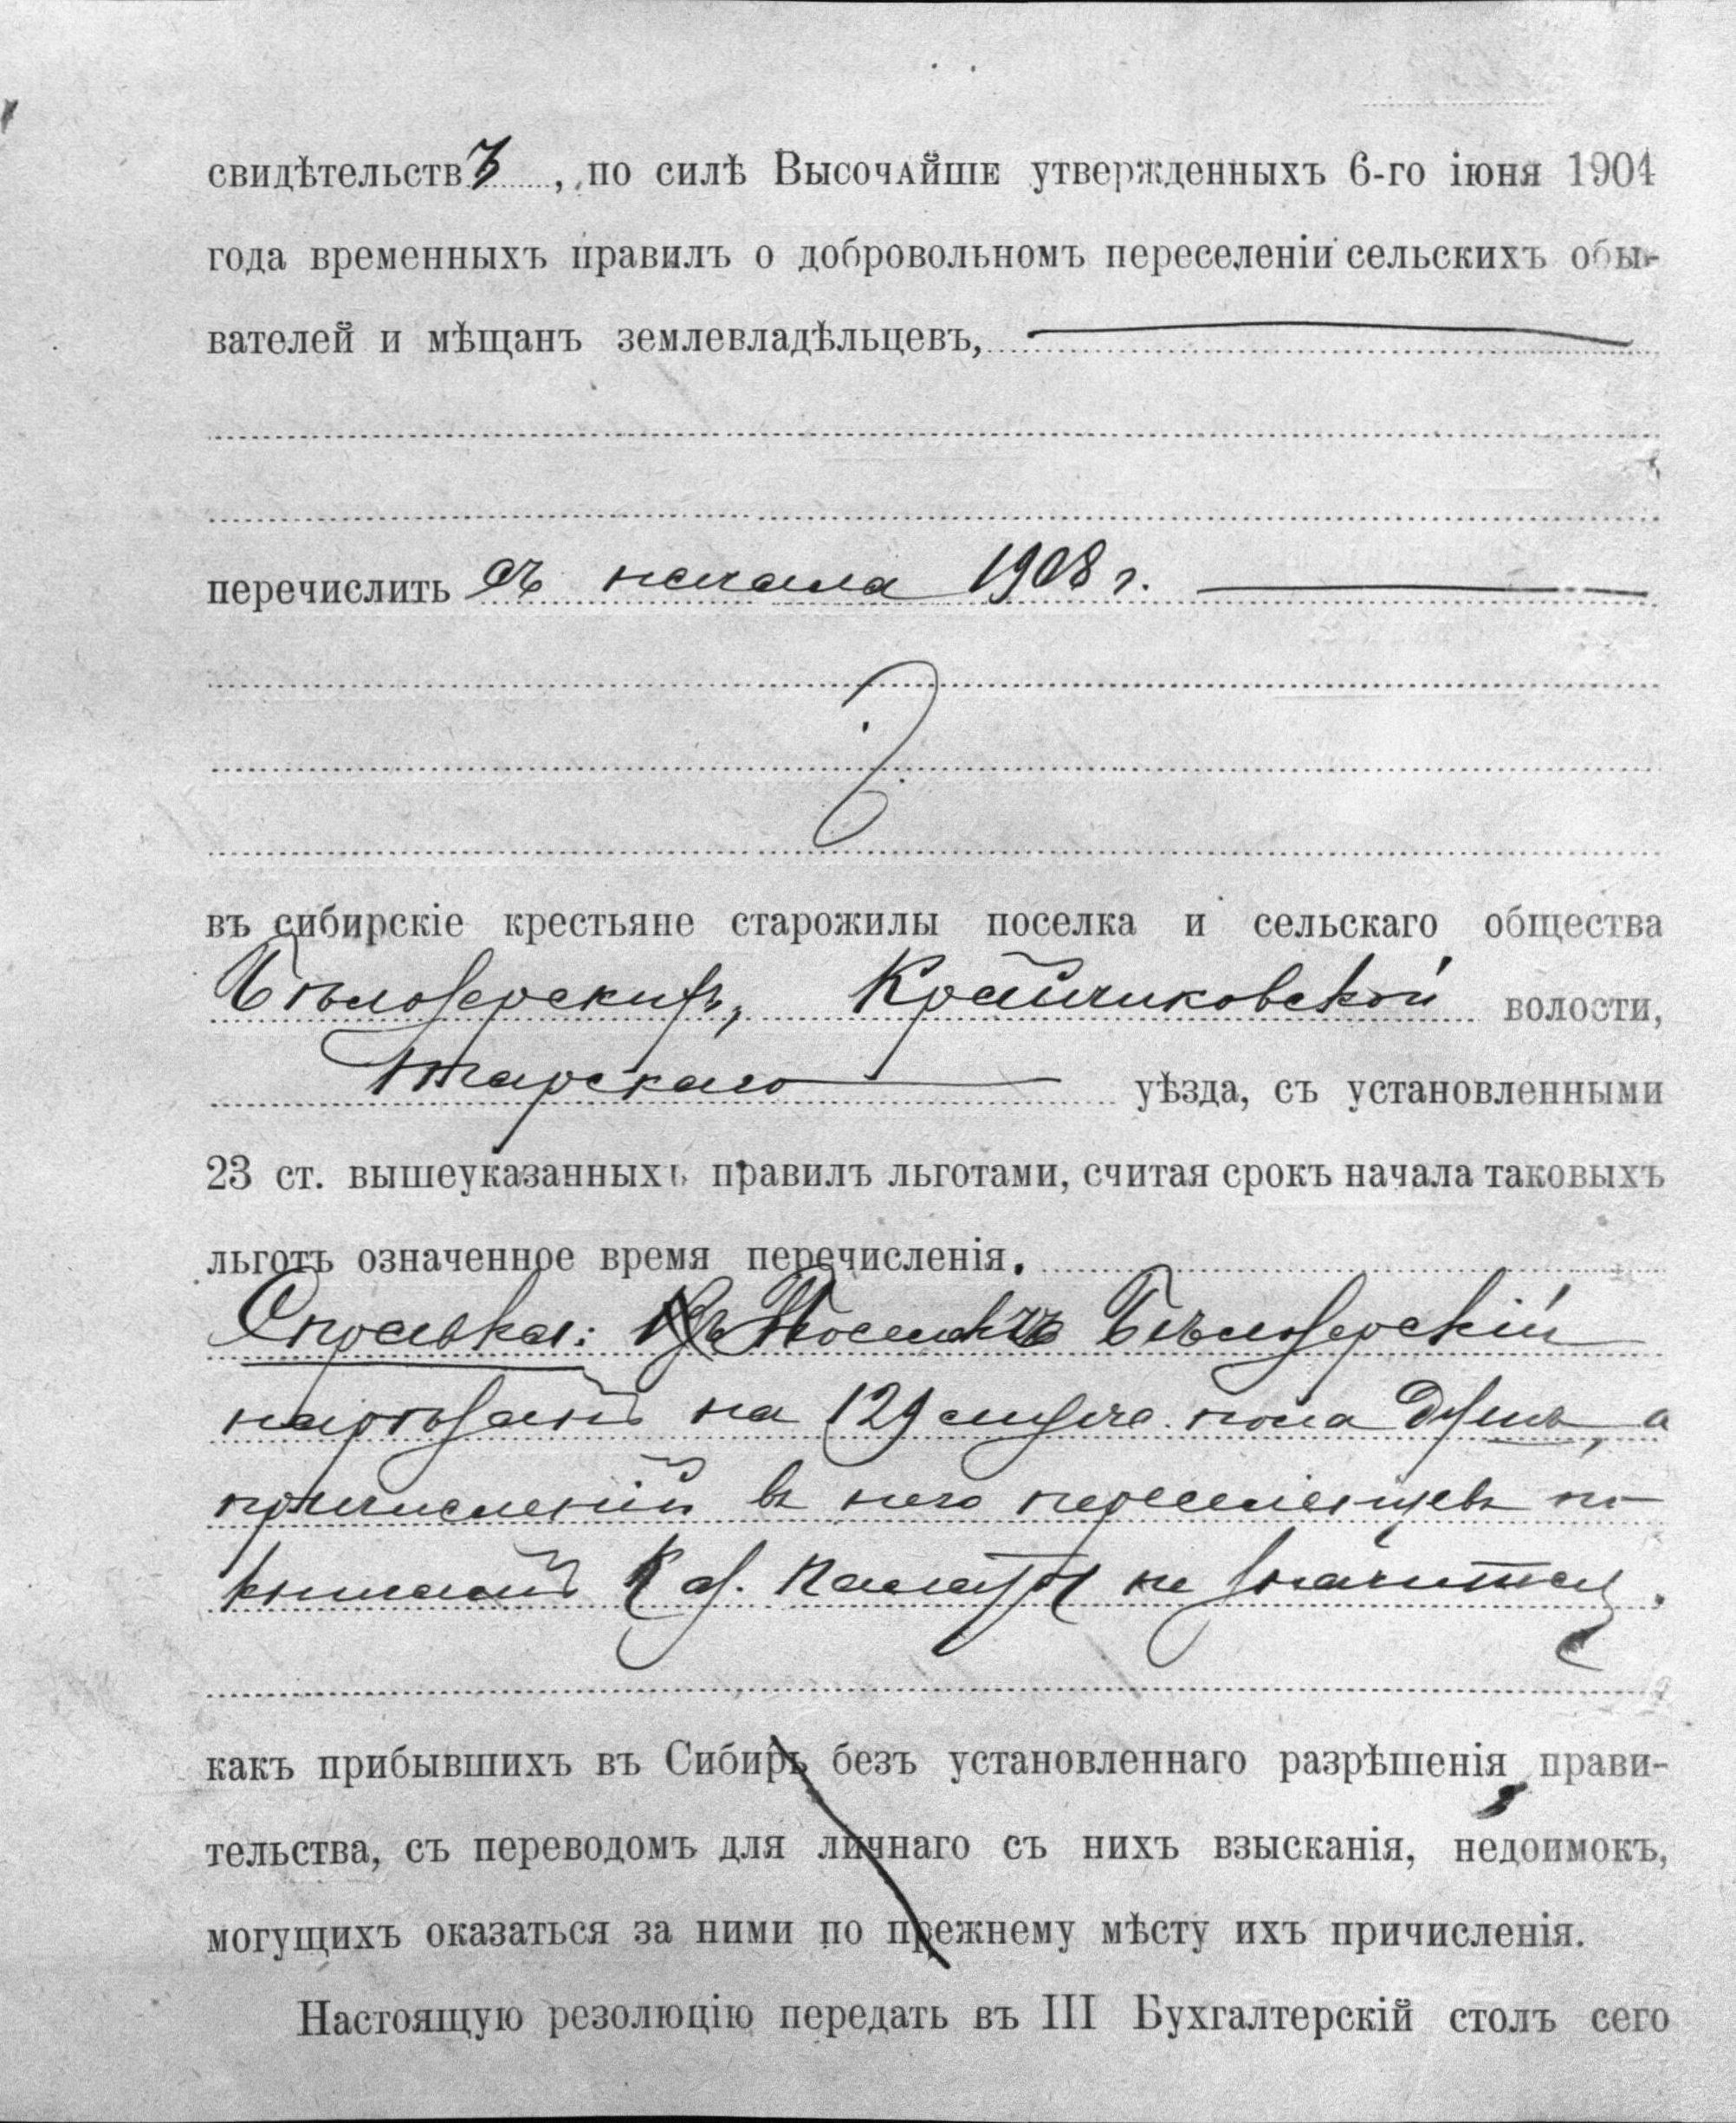 свидѣтельствъ, по силѣ Высочайше утвержденныхъ 6-го іюня 1904
года временныхъ правилъ о добровольномъ переселеніи сельскихъ обы-
вателей и мѣщанъ землевладѣльцевъ,
перечислить съ начала 1908 г.
въ сибирскіе крестьяне старожилы поселка и сельскаго общества
Бѣлозерскихъ, Крайчиковской волости,
Тарскаго уѣзда, съ установленными
23 ст. вышеуказанныхъ правилъ льготами, считая срокъ начала таковыхъ
льготъ означенное время перечисленія.
Справка: Поселокъ Бѣлозерскій
нарѣзанъ на 129 мужск. пола душъ, а
причисленій въ него переселенцевъ по
книгамъ Каз. Палаты не значится.
какъ прибывшихъ въ Сибирь безъ установленнаго разрѣшенія прави-
тельства, съ переводомъ для личнаго съ нихъ взысканія, недоимокъ,
могущихъ оказаться за ними по прежнему мѣсту ихъ причисленія.
Настоящую резолюцію передать въ III Бухгалтерскій столъ сего